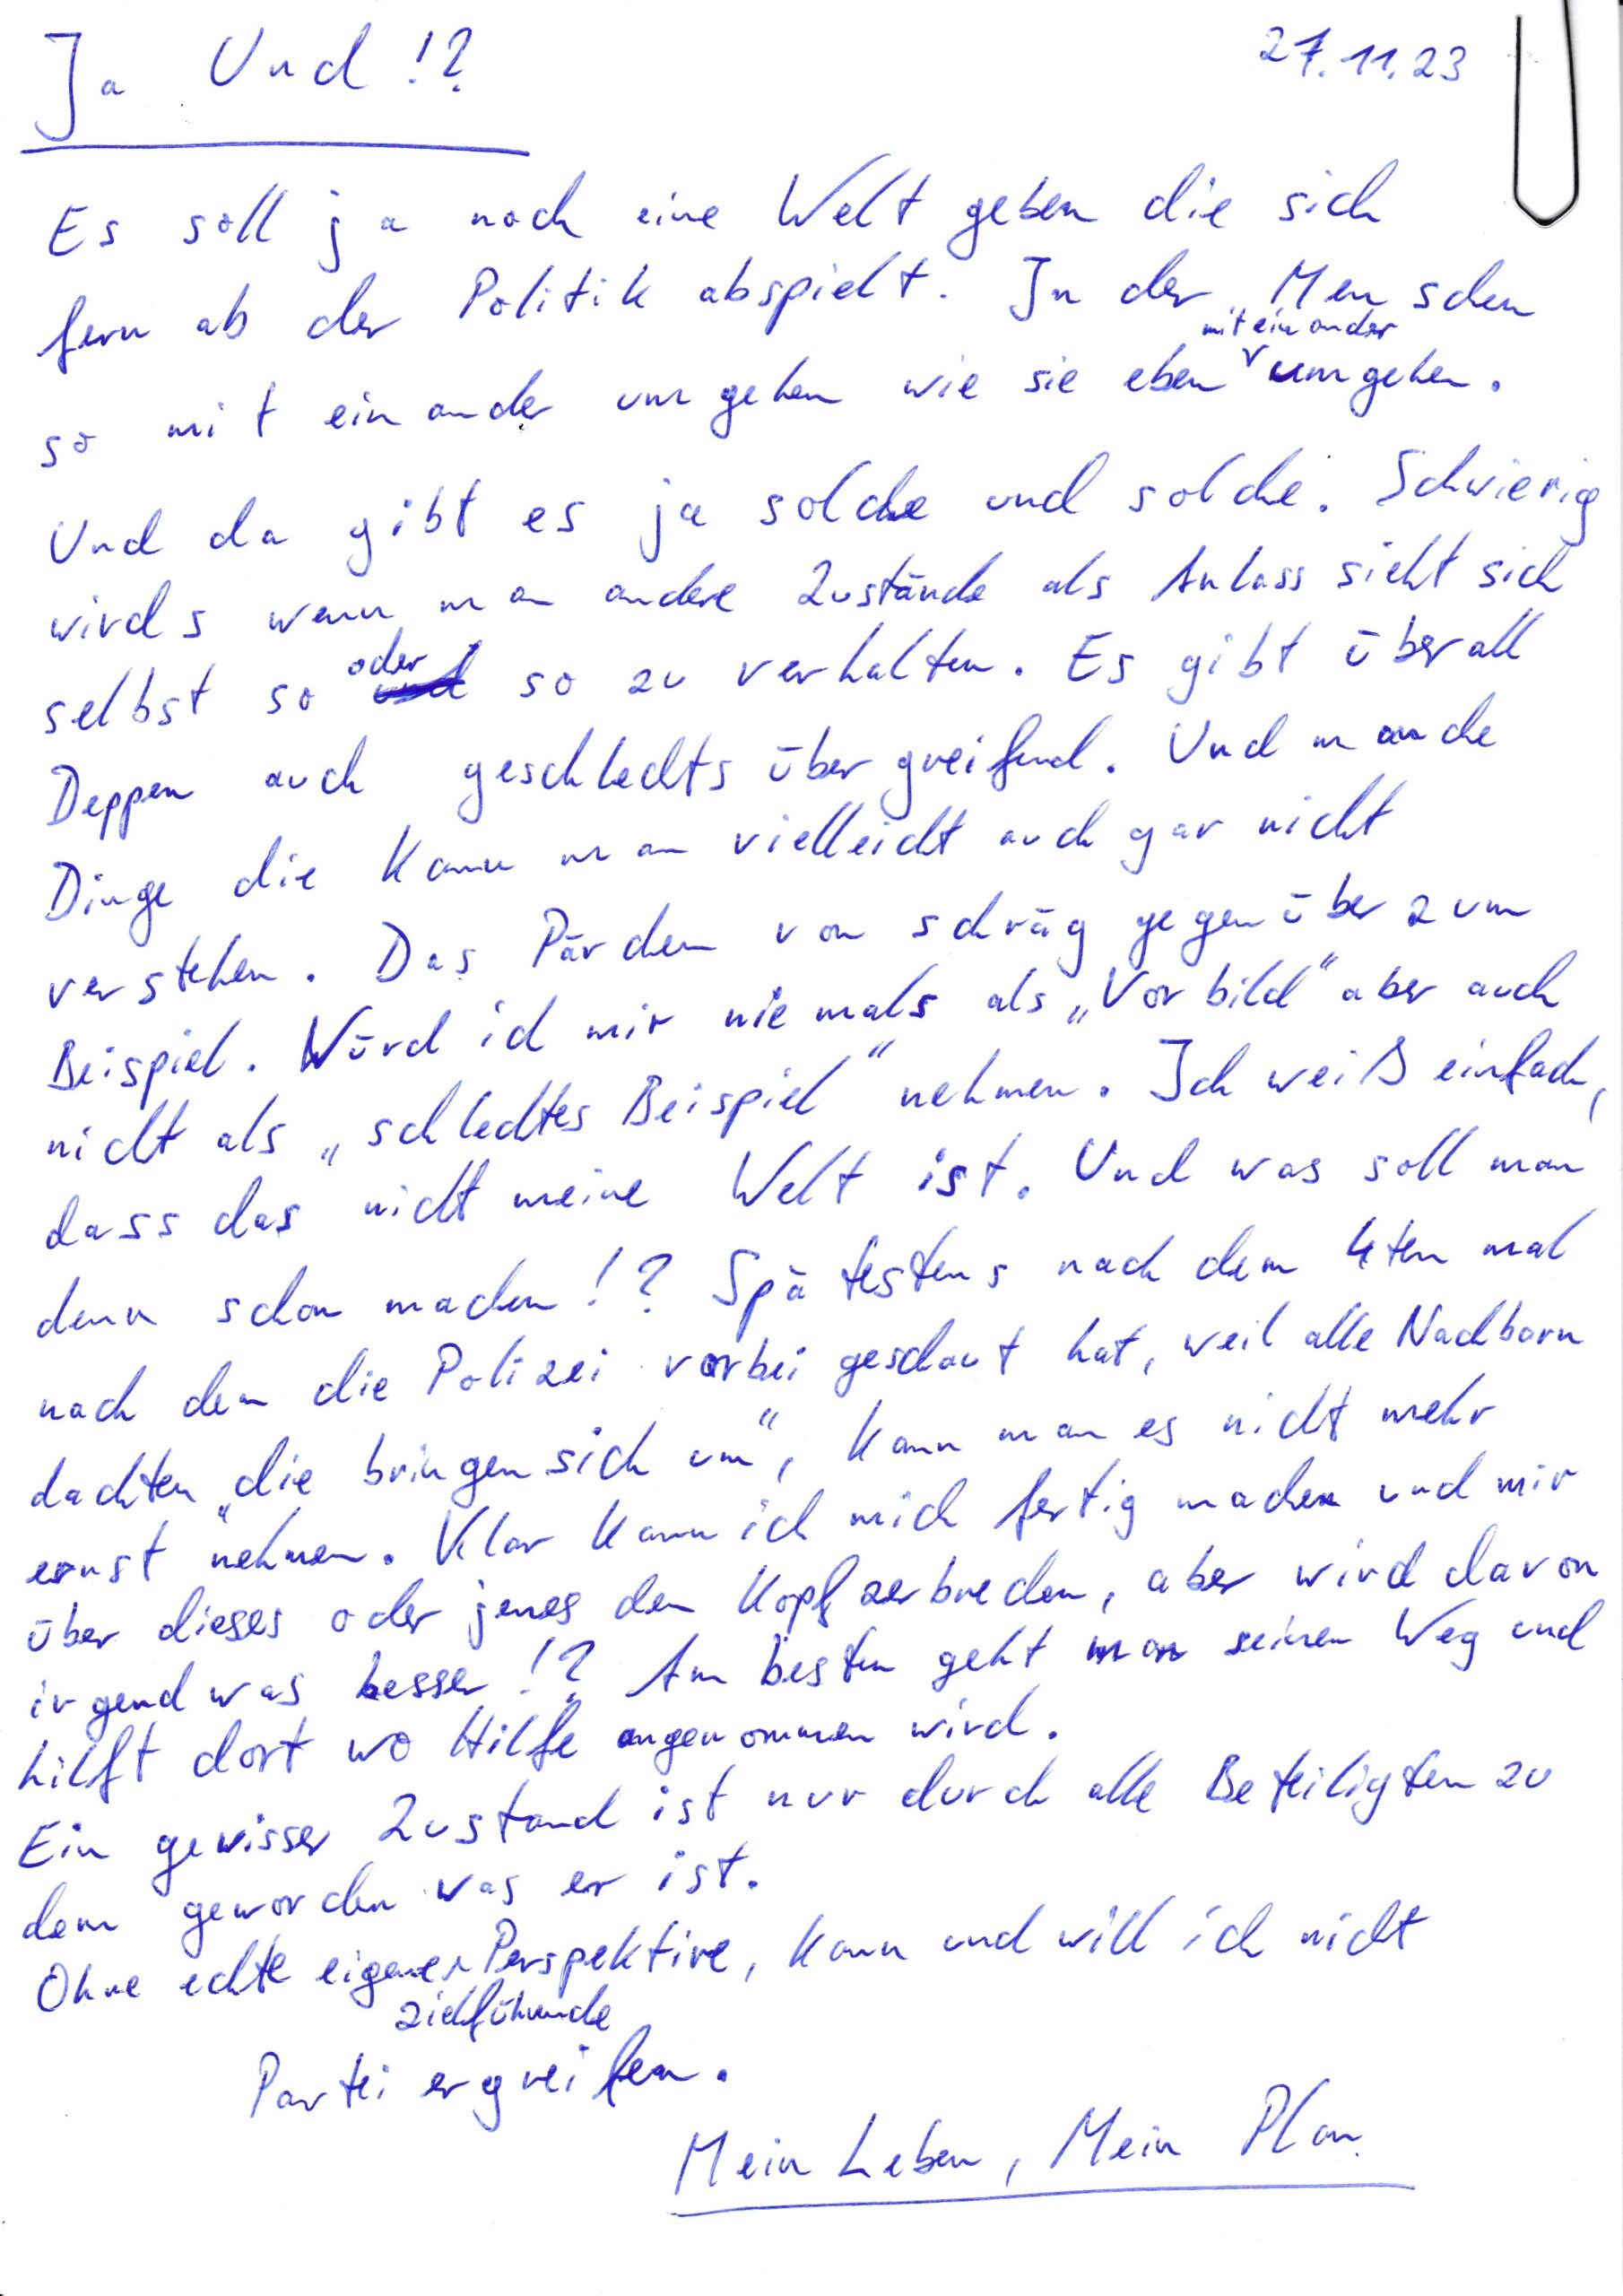 Ja Und!? 27.11.23
Es soll ja noch eine Welt geben die sich
fern ab der Politik abspielt. In der Menschen
so miteinander umgehen wie sie eben miteinander umgehen.
Und da gibt es ja solche und solche. Schwierig
wirds wenn man andere Zustände als Anlass sieht sich
selbst so oder so zu verhalten. Es gibt überall
Deppen auch geschlechtsübergreifend. Und manche
Dinge die kann man vielleicht auch gar nicht
verstehen. Das Pärchen von schräg gegenüber zum
Beispiel. Würd ich mir niemals als „Vorbild“ aber auch
nicht als „schlechtes Beispiel“ nehmen. Ich weiß einfach,
dass das nicht meine Welt ist. Und was soll man
denn schon machen!? Spätestens nach dem 4ten mal
nach dem die Polizei vorbei geschaut hat, weil alle Nachbarn
dachten „die bringen sich um“, kann man es nicht mehr
ernst nehmen. Klar kann ich mich fertig machen und mir
über dieses oder jenes den Kopf zerbrechen, aber wird davon
irgendwas besser!? Am besten geht man seinen Weg und
hilft dort wo Hilfe angenommen wird.
Ein gewisser Zustand ist nur durch alle Beteiligten zu
dem geworden was er ist.
Ohne echte eigene zielführende Perspektive, kann und will ich nicht
Partei ergreifen.
Mein Leben, Mein Plan.